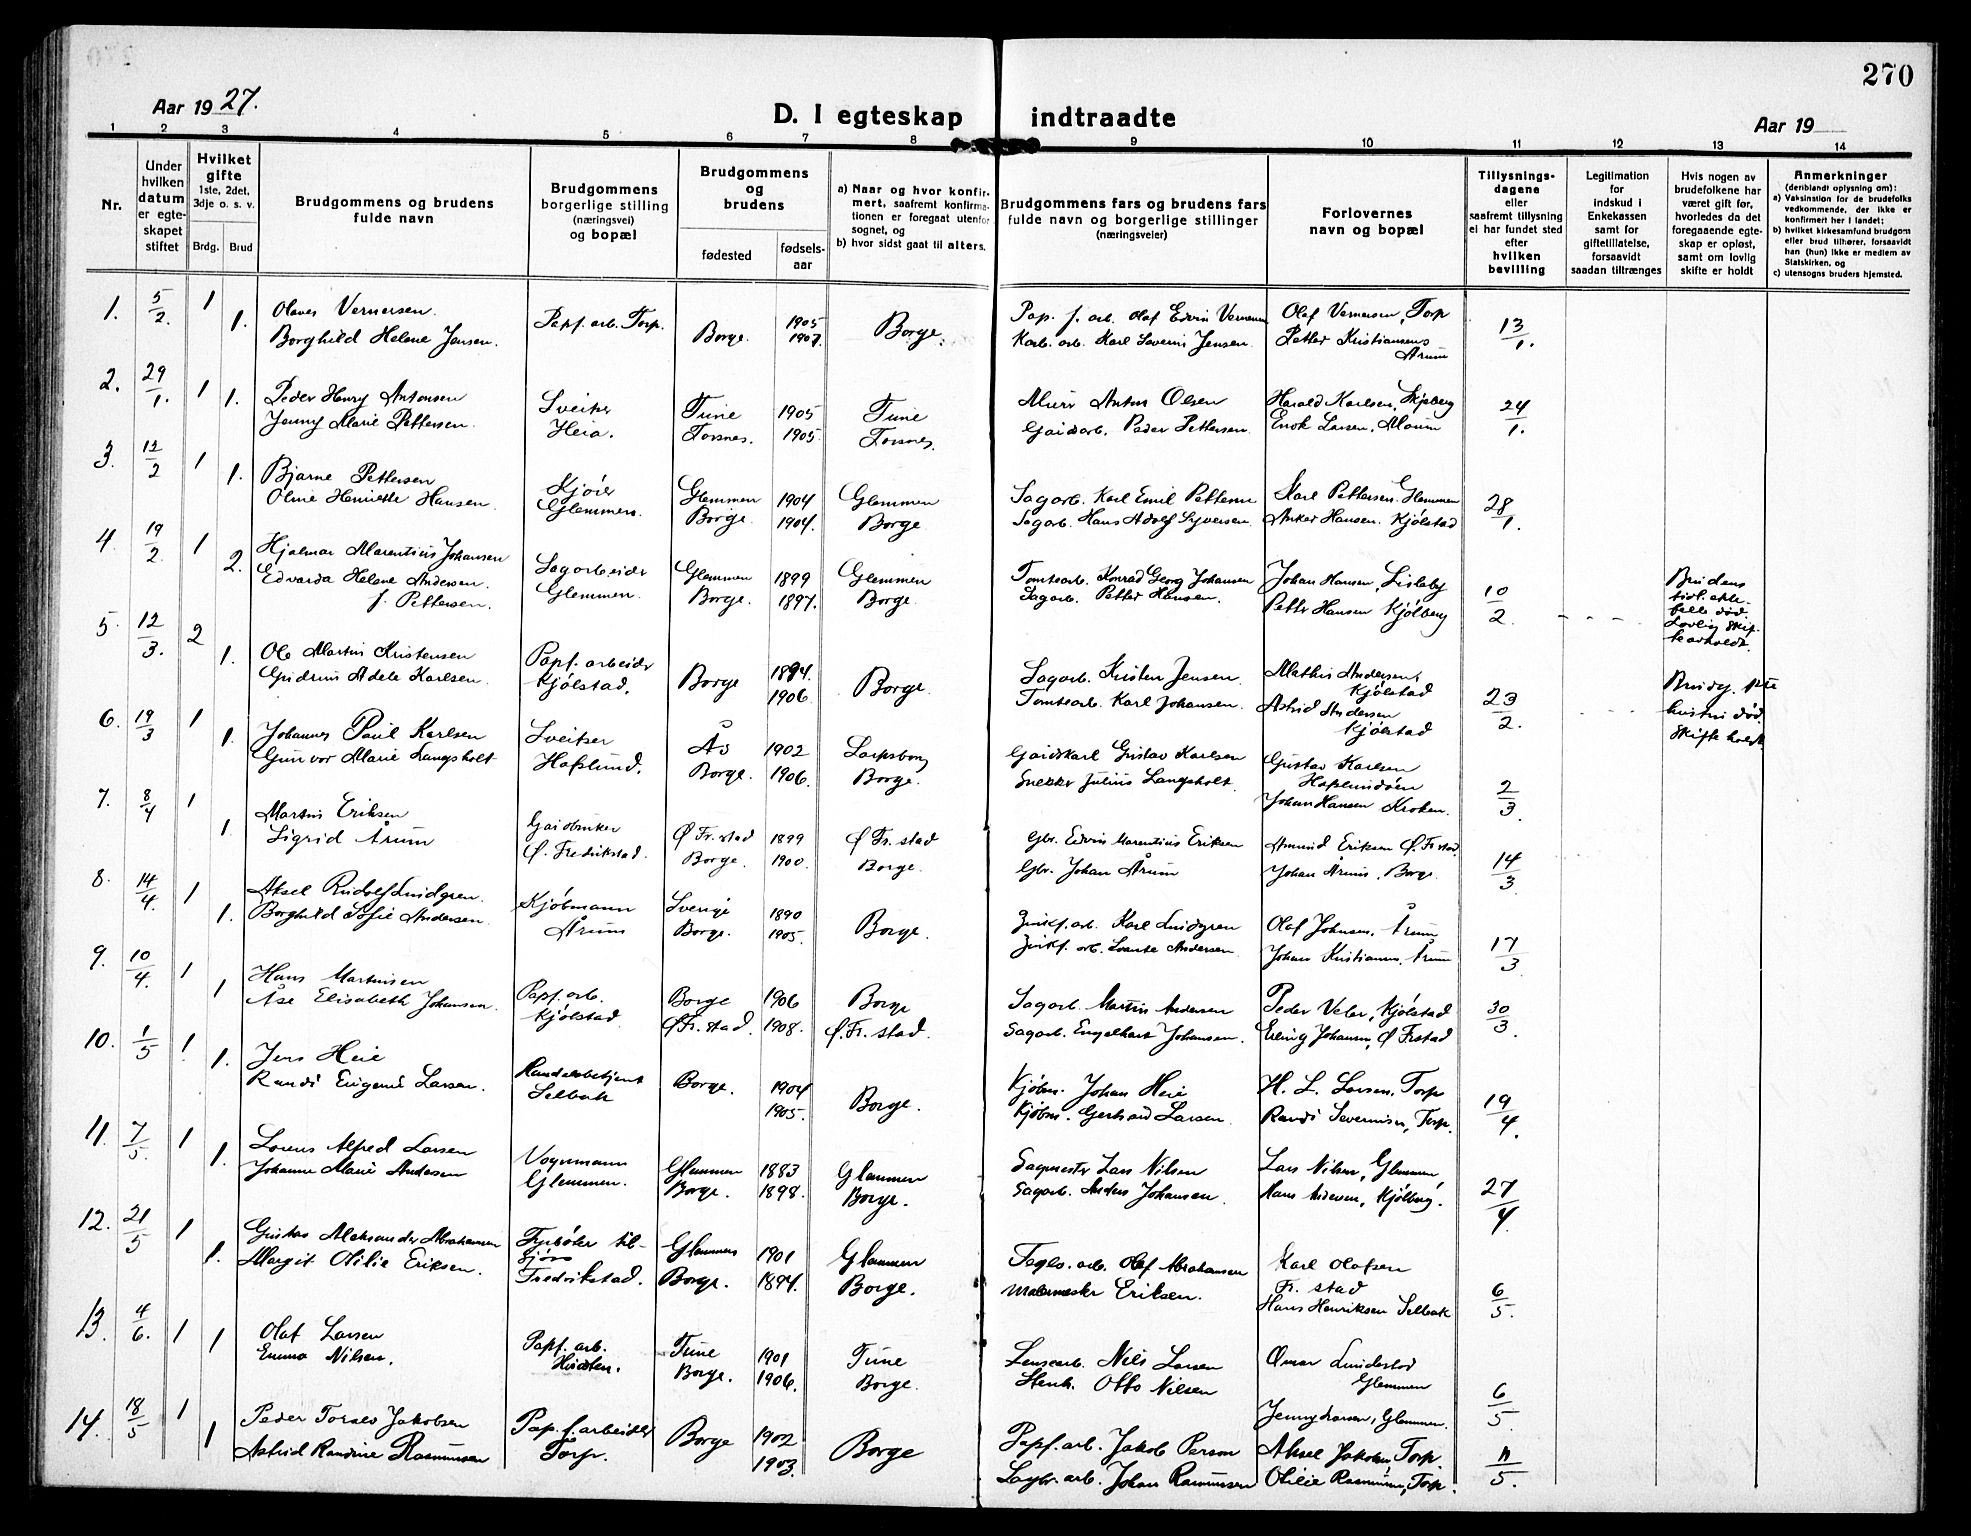 270
Aar 1927.
D. I egteskap indtraadte
Aar 19
1 2 3 4 5 6 7 8 9 10 11 12 13 14
Nr.
Under hvilken datum er egteskapet stiftet
Hvilket gifte 1ste, 2det, 3dje o. s. v.
Brdg. Brud
Brudgommens og brudens fulde navn
Brudgommens borgerlige stilling (næringsvei) og bopæl
Brudgommens og brudens
fødested fødselsaar
a) Naar og hvor konfirmert, saafremt konfirmationen er foregaat utenfor sognet, og
b) hvor sidst gaat til alters.
Brudgommens fars og brudens fars fulde navn og borgerlige stillinger (næringsveier)
Forlovernes navn og bopæl
Tillysningsdagene eller saafremt tillysning ei har fundet sted efter hvilken bevilling
Legitimation for indskud i Enkekassen samt for giftetillatelse, forsaavidt saadan tiltrænges
Hvis nogen av brudefolkene har været gift før, hvorledes da det foregaaende egteskap er opløst, samt om lovlig skifte er holdt
Anmerkninger (deriblandt oplysning om):
a) Vaksination for de brudefolks vedkommende, der ikke er konfirmert her i landet;
b) hvilket kirkesamfund brudgom eller brud tilhører, forsaavidt han (hun) ikke er medlem av Statskirken, og
c) utensogns bruders hjemsted.
1. 5/2. 1 1. Olaves Vernersen. Papf. arb. Torp. 1905 Pap. f. arb. Olaf Edvin Olaf Vernersen, Torp 13/1.
Borghild Helene Jensen. Borge. 1907. Borge. Karb. arb. Karl Severin Jensen. Petter Kristiansens
Årum
2. 29/1. 1 1. Peder Henry Antonsen Sveiser Tune 1905 Tune Anton Olsen Harald Karlsen, Skjeberg 24/1.
Jenny Marie Pettersen. Heia. Torsnes. 1905. Torsnes. Gaardarb. Peder Pettersen. Enok Larsen,
3. 12/2 1 1. Bjarne Pettersen Kjører Glemmen 1904 Glemmen Sagarb. Karl Emil Karl Pettersen. Glemmen 28/1.
Olme Henriette Hansen. Glemmen. Borge 1904. Borge. Sagarb. Hans Adolf Syversen. Anker Hansen. Kjølstad
4. 19/2 1 2. Hjalmar Marentius Johansen Sagarbeider Glemmen 1899 Glemmen Tomtearb. Konrad Georg Johansen Johan Hansen, Lisleby 10/2.
Edvarda Helene Andersen. Glemmen. Borge. 1897. Borge. Sagarb. Petter Hansen. Petter Hansen Kjølberg
f. Pettersen.
Brudens
tidl. ekte-
felle død
Lovlig skif-
te avholdt.
5. 12/3. 2 1. Ole Martin Kristensen Papf. arbeider Borge 1894. Borge. Sagarb. Kristen Jensen. Mathis Andersen, Kjølstad 23/2.
Gudrun Adele Karlsen. Kjølstad. 1906. Tomtearb. Karl Johansen. Astrid Andersen Kjølstad
Brudg. 1ste
hustru død
Skifte holdt
6. 19/3 1 1. Johannes Paul Karlsen Sveitser Ås 1902 Sarpsborg Gaardskarl Gustav Karlsen Gustav Karlsen 2/3.
Gunvor Marie Langsholt Hafslund. Borge. 1906. Borge. Snekker Julius Langsholt. Hafslundsøen
Johan Hansen Kroken.
7. 8/4 1 1. Martin Eriksen Gardbruker Ø Fr. stad 1899 Ø Fr. stad Gbr. Edvin Marentius Eriksen Amund Eriksen Ø. Fr stad. 14/3.
Sigrid Årum Ø. Fredrikstad. Borge. 1900. Borge. Gbr. Johan Årum Johan Årum, Borge
8. 14/4. 1 1. Aksel Rudolf Lindgren. Kjøbmann Sverige 1890 Borge. Zinkf. arb. Karl Lindgren Olaf Johnsen, Årum 17/3
Borghild Sofie Andersen. Årum Borge. 1905. Zinkf. arb. Andersen. Johan Årum
9. 10/4. 1 1 Hans Martinsen Papf. arb. Borge 1906 Borge Sagarb. Martin Andersen Peder Kjølstad 30/3.
Åse Elisabeth Johansen. Kjølstad. Ø Fr. stad. 1908. Ø. Fr. stad. Sagarb. Engelhart Johansen. Erling Johansen, Ø Frstad
10. 1/5 1 1. Jens Heie Handelsbetjent Borge. 1904 Borge. Kjøbm. Johan Heie H. L. Larsen, Torp 19/4.
Randi Eugenie Larsen. Selbak 1905. Kjøbm. Gerhard Larsen. Randi Torp.
11. 7/5. 1 1. Lorens Alfred Larsen Vognmann Glemmen 1883 Glemmen Sagmester Lars Nilsen Lars Nilsen, Glemmen 27/4.
Johanne Marie Andersen Glemmen. Borge. 1898. Borge. Sagarb. Anders Johansen. Hans Andersen, Kjølberg.
12. 21/5 1 1. Gustav Aleksander Abrahamsen Fyrbøter til- Glemmen 1901 Glemmen Tegls. arb. Olaf Abrahamsen Karl Olafsen 6/5.
Margit Otilie Eriksen. sjøs Borge. 1894. Borge. Malermester Eriksen. Fr. stad
Fredrikstad. Hans Henriksen Selbak
13. 4/6. 1 1 Olaf Larsen Papf. arb. Tune 1901 Tune Lensearb. Nils Larsen Omar Lundestad 6/5.
Emma Nilsen. Hvidsten. Borge. 1906. Borge. Stenh. Otto Nilsen Glemmen
Jenny Larsen, Glemmen.
14. 18/5 1 1 Peder Torlev Jakobsen Pap. f. arbeider Borge 1902 Borge Papf. arb. Jakob Person Aksel Jakobsen, Torp. 11/5.
Astrid Randine Rasmussen Torp. 1903. arb. Johan Rasmussen Otilie Rasmussen, Torp.